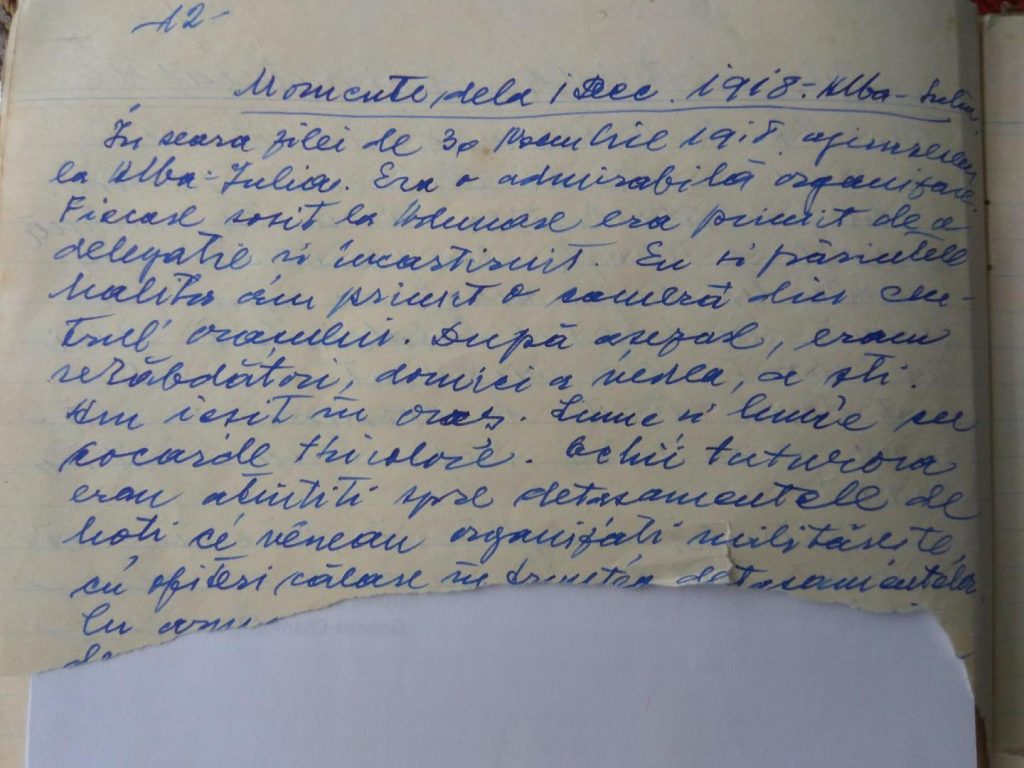 -12-
Momente dela 1 Dec. 1918.- Alba-Iulia.
În seara zilei de 30 Noembrie 1918. ajunseseram
la Alba-Iulia. Era o admirabilă organizare.
Fiecare sosit la Adunare era primit de o
delegatie si incartiruit. Eu si părintele
Malita am primit o cameră din cen-
trul orasului. După asezare, eram
nerăbdători, dornici a vedea, a sti.
Am iesit în oras. Lume si lume cu
cocarde tricolore. Ochii tuturora
erau atintiti spre detasamentele de
moti ce veneau organizati militäreste,
cu ofiteri călare în fruntea detasamentelor.
Cu